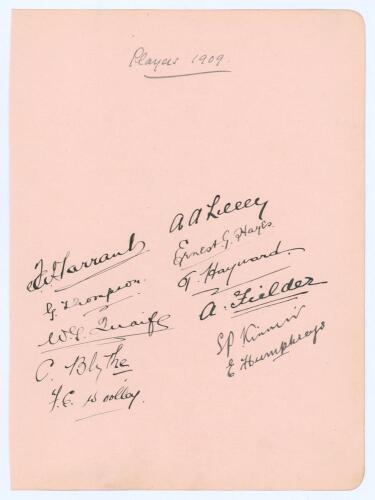 Players 1909.
F. Tarrant
G. Thompson.
W.G. Quaife
C. Blythe
F.E. Woolley.
A A Lilley
Ernest G. Hayes
T. Hayward.
A. Fielder
S.P. Kinneir
E Humphreys